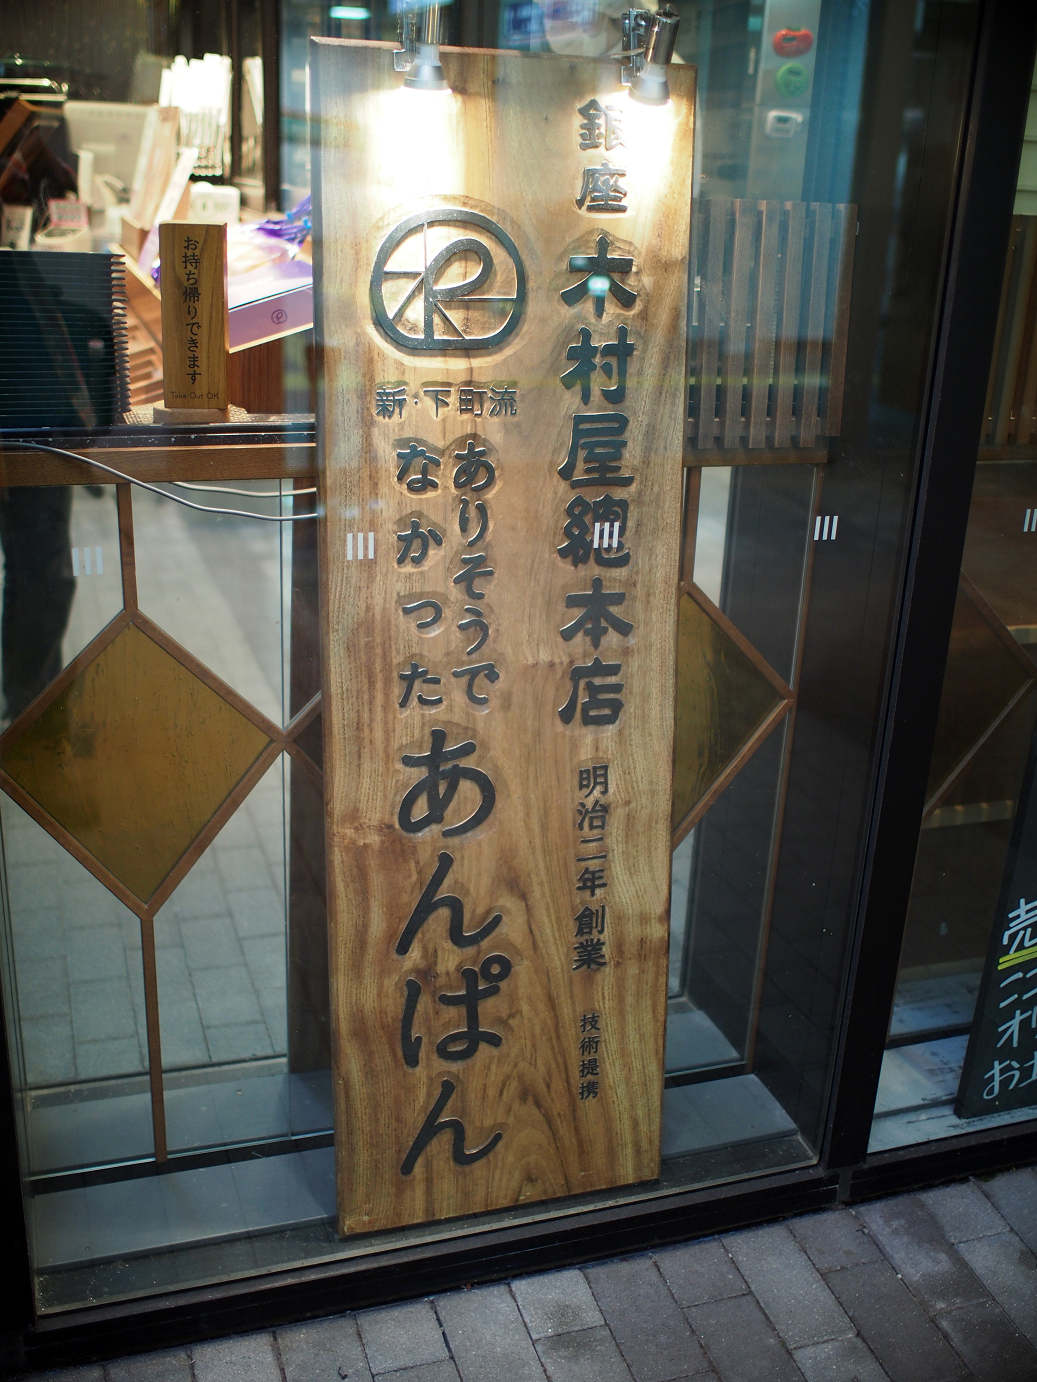 銀座 木村屋總本店 明治二年創業 技術提携
新・下町流
ありそうで
なかった
あんぱん
お持ち帰りできます
Take Out OK